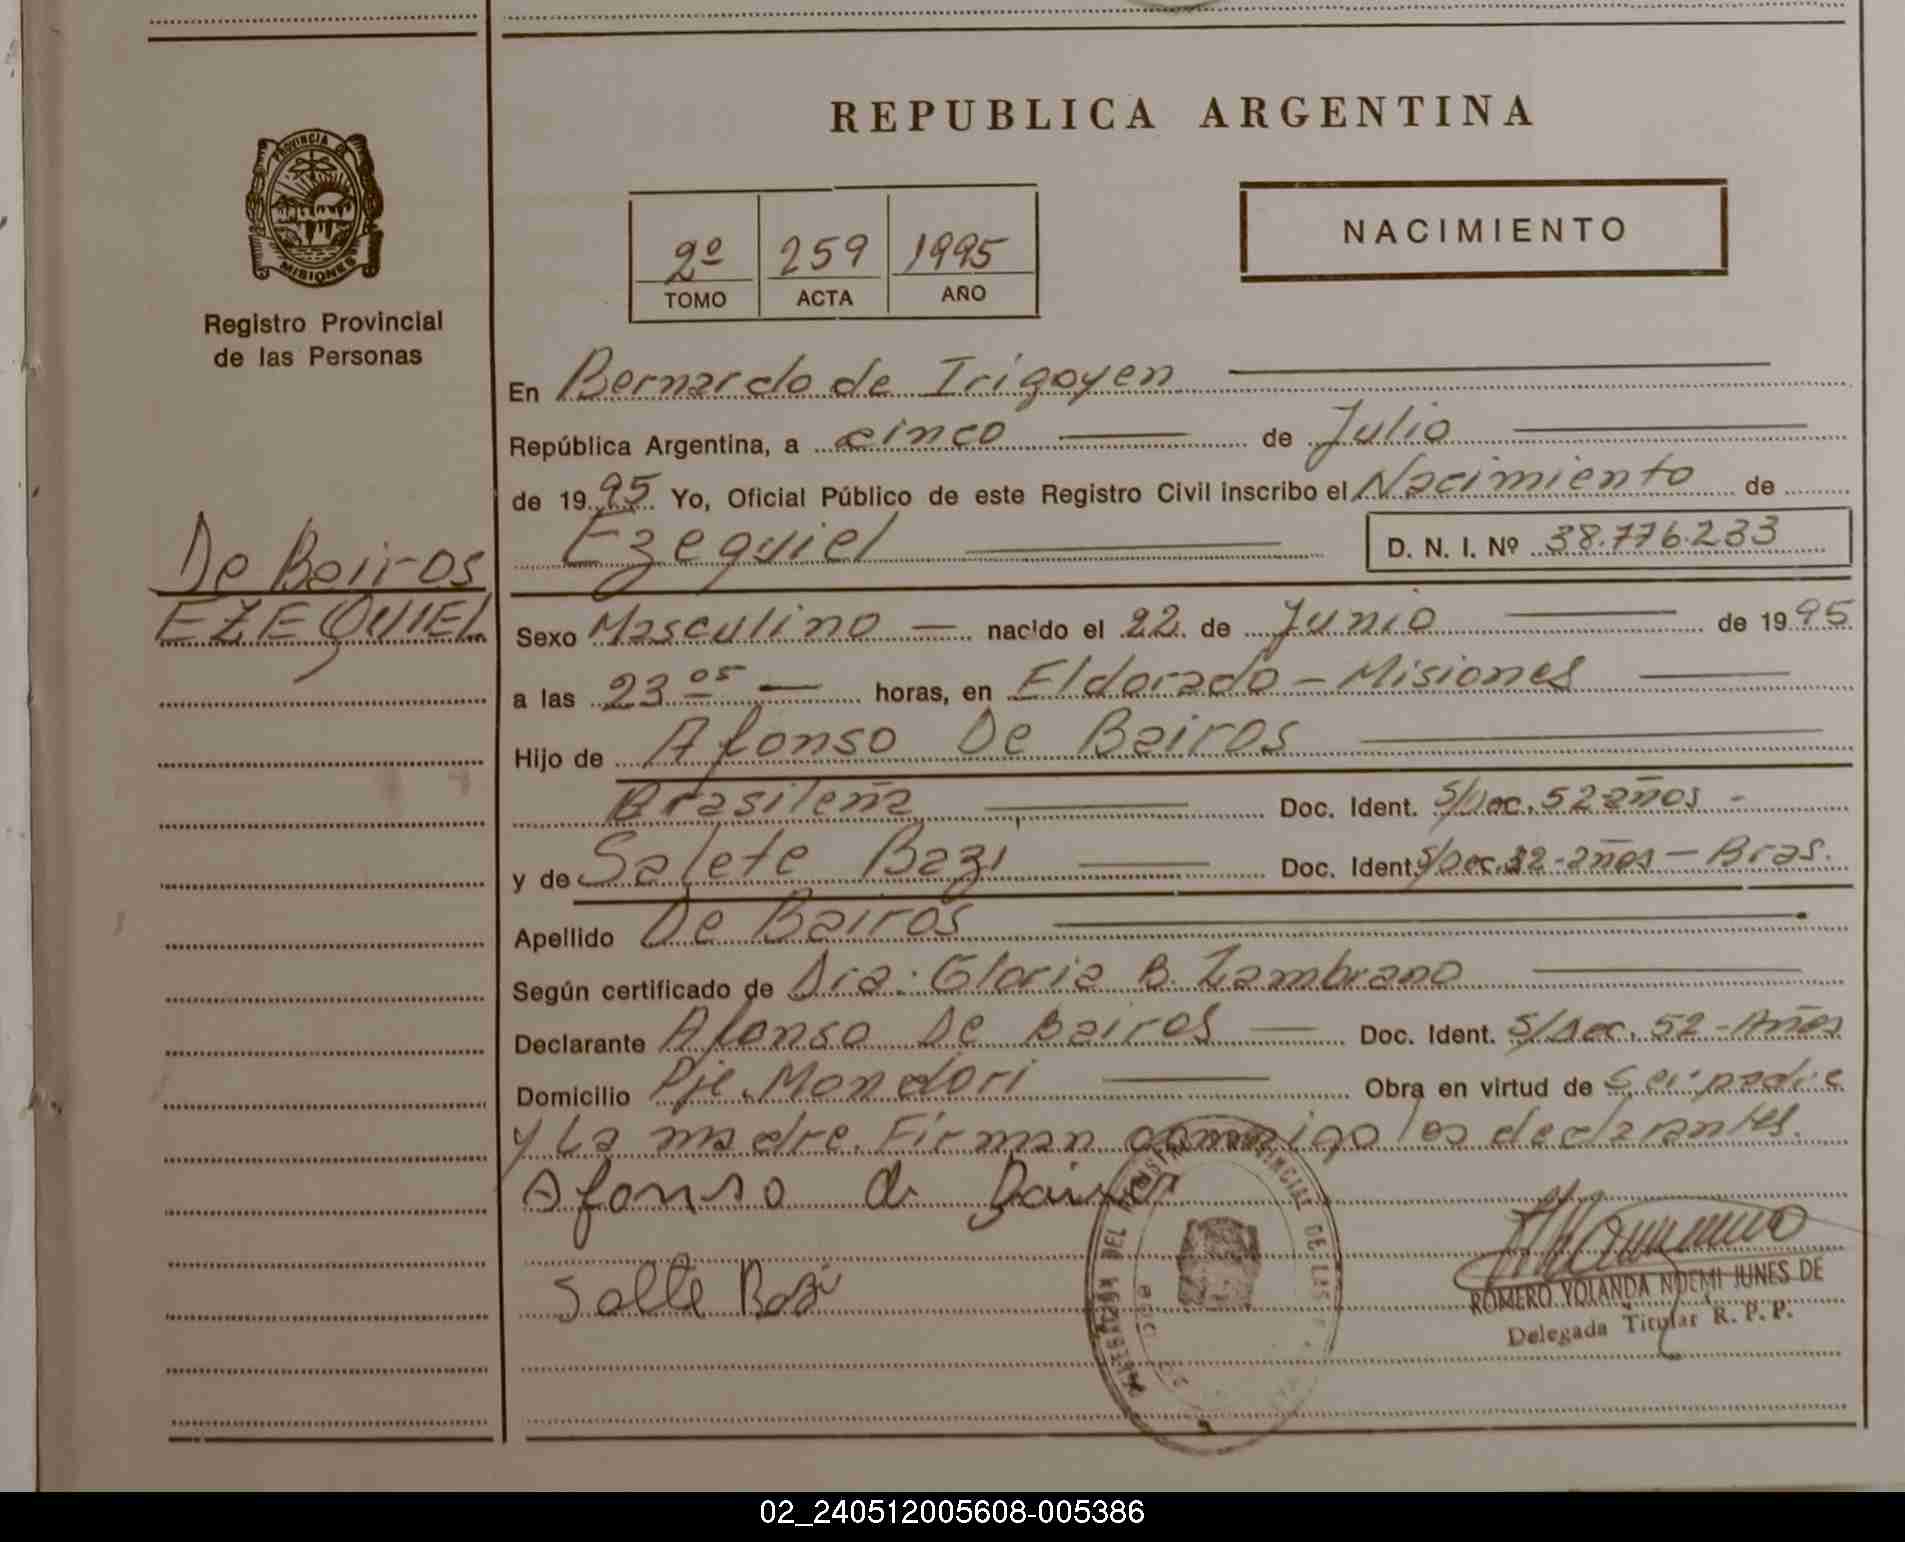 REPUBLICA ARGENTINA
PROVINCIA DE
MISIONES
Registro Provincial
de las Personas
2º 259 1995
TOMO ACTA AÑO
NACIMIENTO
En Bernardo de Irigoyen
República Argentina, a cinco de Julio
de 1995 Yo, Oficial Público de este Registro Civil inscribo el Nacimiento de
Ezequiel D. N. I. Nº 38.776.233
De Bairos
EZEQUIEL
Sexo Masculino nacido el 22 de Junio de 1995
a las 23 05 horas, en Eldorado - Misiones
Hijo de Afonso De Bairos
Brasileña Doc. Ident. S/Doc. 52 años -
y de Salete Bazi Doc. Ident. S/Doc. 32 - años - Bras.
Apellido De Bairos
Según certificado de Dra: Gloria B. Zambrano
Declarante Afonso De Bairos Doc. Ident. S/Doc. 52 - Años
Domicilio Pje. Mondori Obra en virtud de Ser padre
y La madre. Firman conmigo los declarantes.
Afonso de Bairos
Salete Bazi
DEL REGISTRO PROVINCIAL DE LAS
ROMERO YOLANDA NOEMI JUNES DE
Delegada Titular R. P. P.
02_240512005608-005386